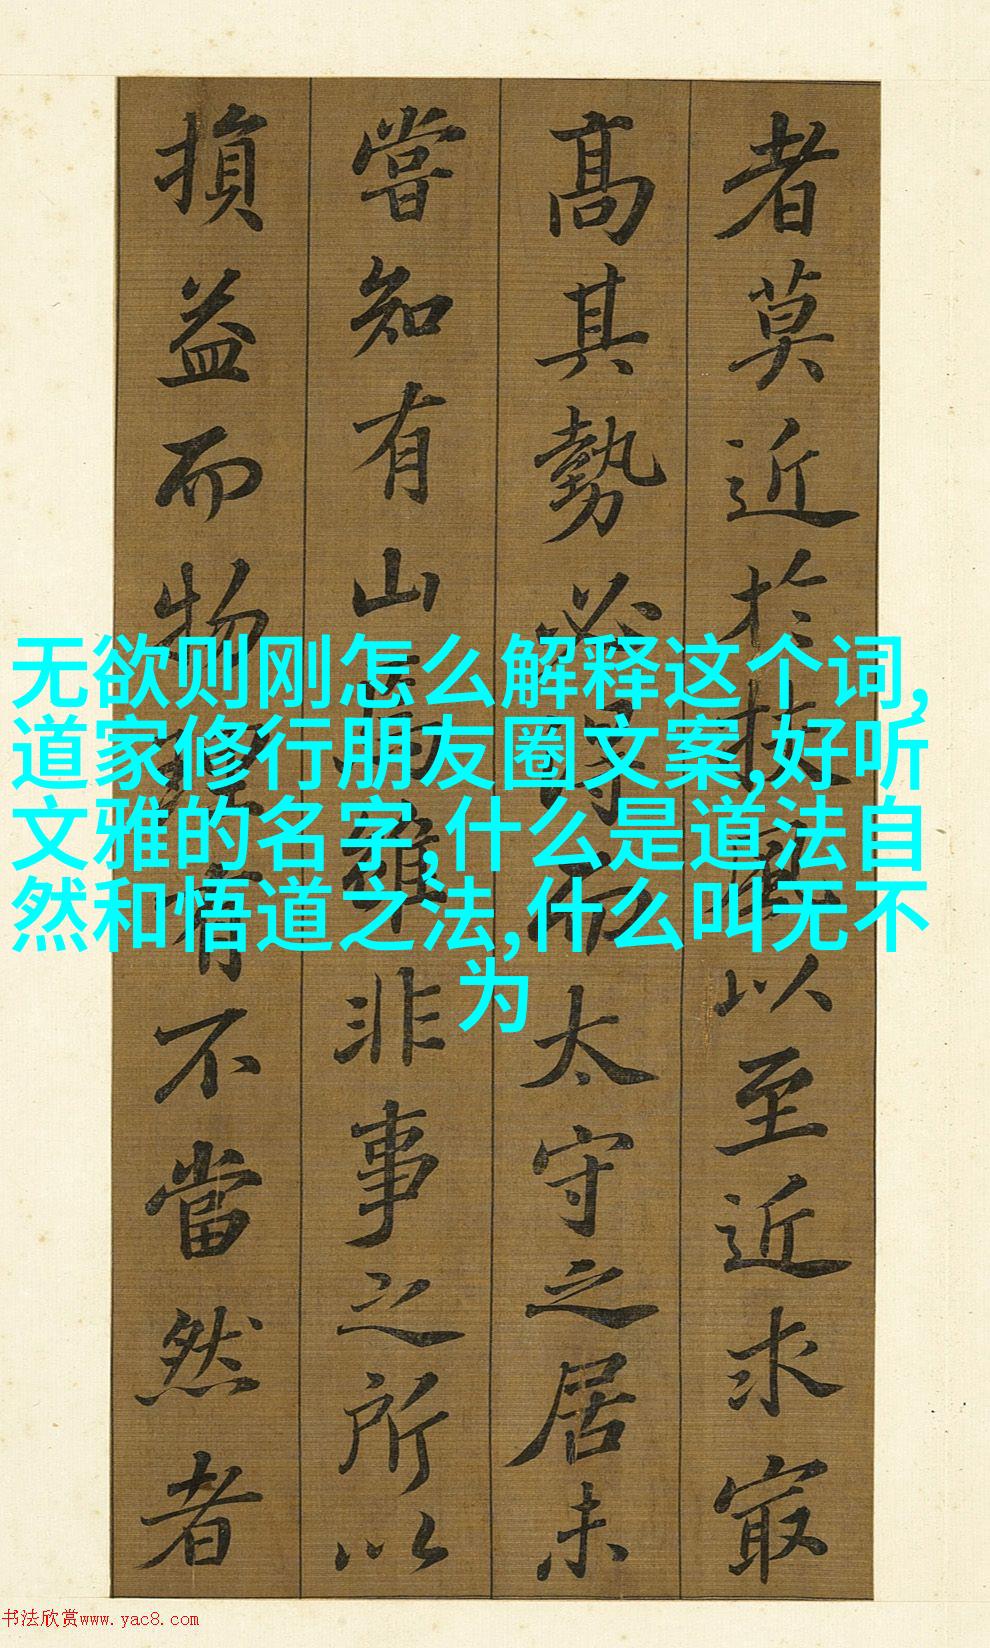 者莫近於扶風以至近求㝡
髙其勢必得而太守之居未
嘗知有山焉雖非事之所以
損益而物理有不當然者
无欲则刚怎么解释这个词,
道家修行朋友圈文案,好听
文雅的名字,什么是道法自
然和悟道之法,什么叫无不
为
书法欣赏www.yac8.com